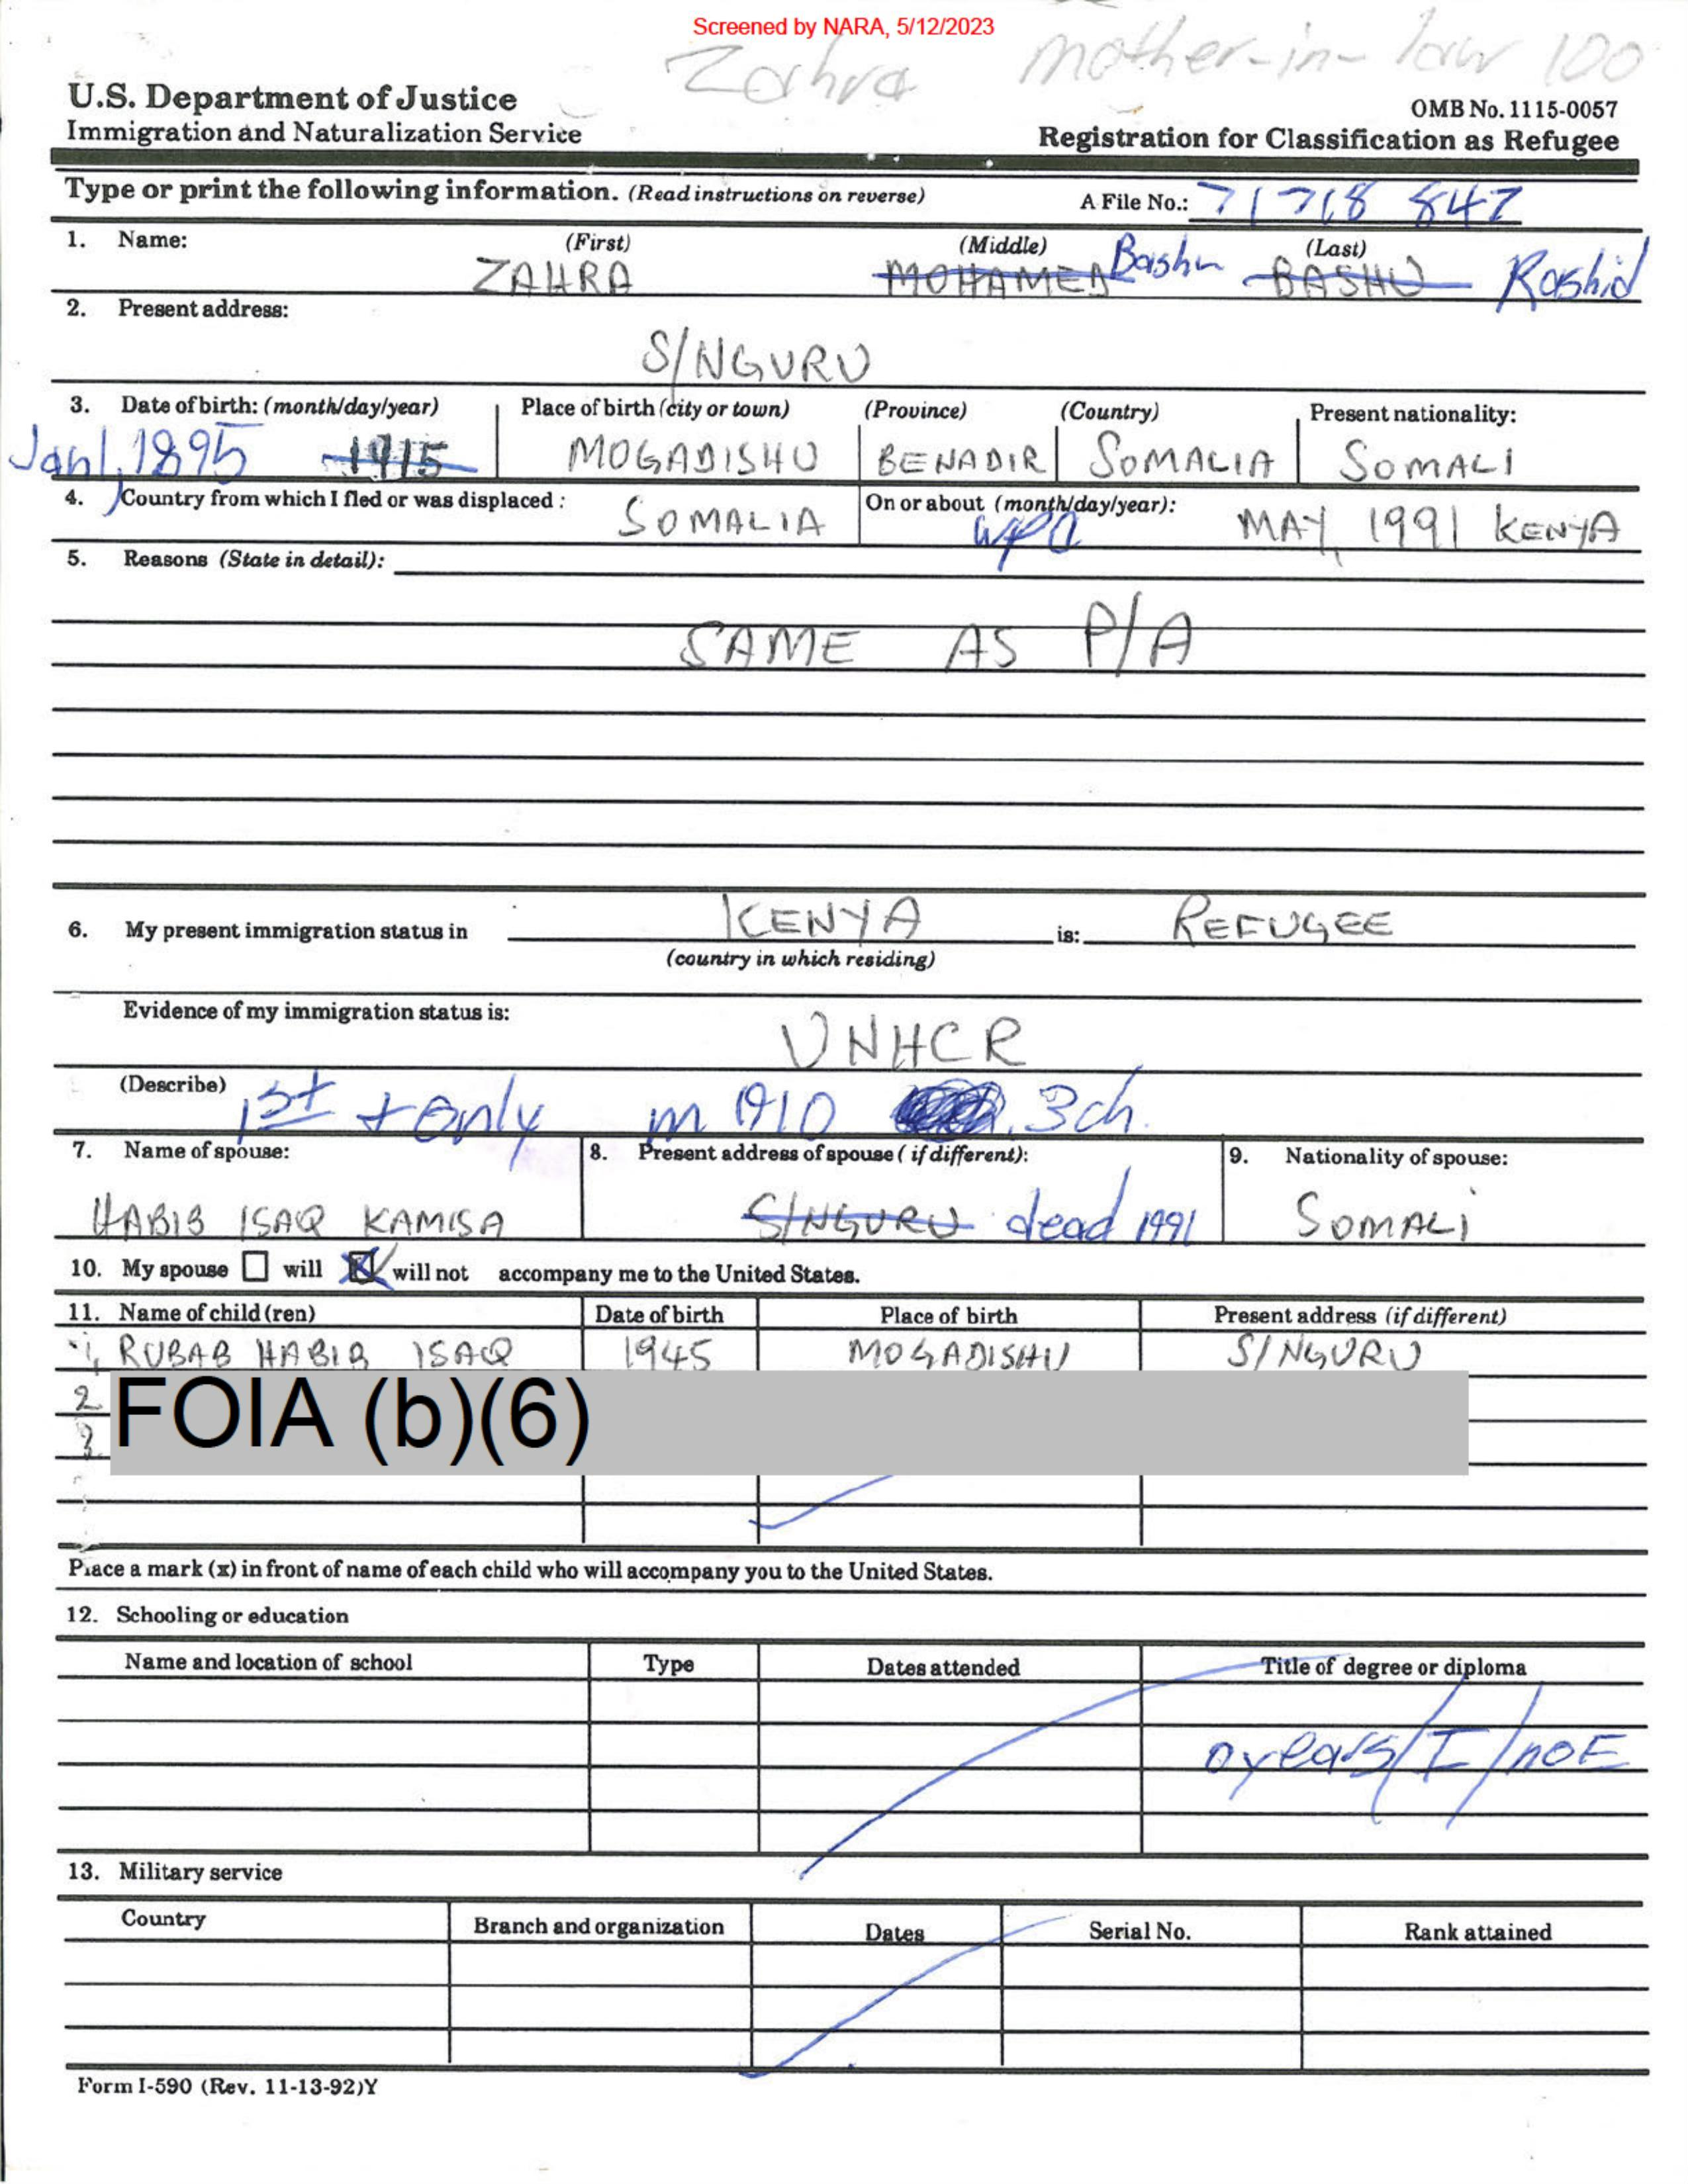 Screened by NARA, 5/12/2023
Zahra mother-in-law 100
U.S. Department of Justice
Immigration and Naturalization Service
OMB No. 1115-0057
Registration for Classification as Refugee
Type or print the following information. (Read instructions on reverse)
A File No.: 71 718 847
1. Name: (First) (Middle) (Last)
ZAHRA MOHAMED Bashu BASHU Rashid
2. Present address:
S/NGURU
3. Date of birth: (month/day/year) Place of birth (city or town) (Province) (Country) Present nationality:
Jan 1, 1895 1915 MOGADISHU BENADIR SOMALIA SOMALI
4. Country from which I fled or was displaced : SOMALIA On or about (month/day/year): MAY 1991 KENYA
5. Reasons (State in detail):
SAME AS P/A
6. My present immigration status in KENYA is: REFUGEE
(country in which residing)
Evidence of my immigration status is:
UNHCR
(Describe) 1st + only m 1910 3ch.
7. Name of spouse: 8. Present address of spouse ( if different): 9. Nationality of spouse:
HABIB ISAQ KAMISA S/NGURU dead 1991 SOMALI
10. My spouse will will not accompany me to the United States.
11. Name of child (ren) Date of birth Place of birth Present address (if different)
1, RUBAB HABIB ISAQ 1945 MOGADISHU S/NGURU
2
FOIA (b)(6)
3.
Place a mark (x) in front of name of each child who will accompany you to the United States.
12. Schooling or education
Name and location of school Type Dates attended Title of degree or diploma
0 years/I/no E
13. Military service
Country Branch and organization Dates Serial No. Rank attained
Form I-590 (Rev. 11-13-92)Y